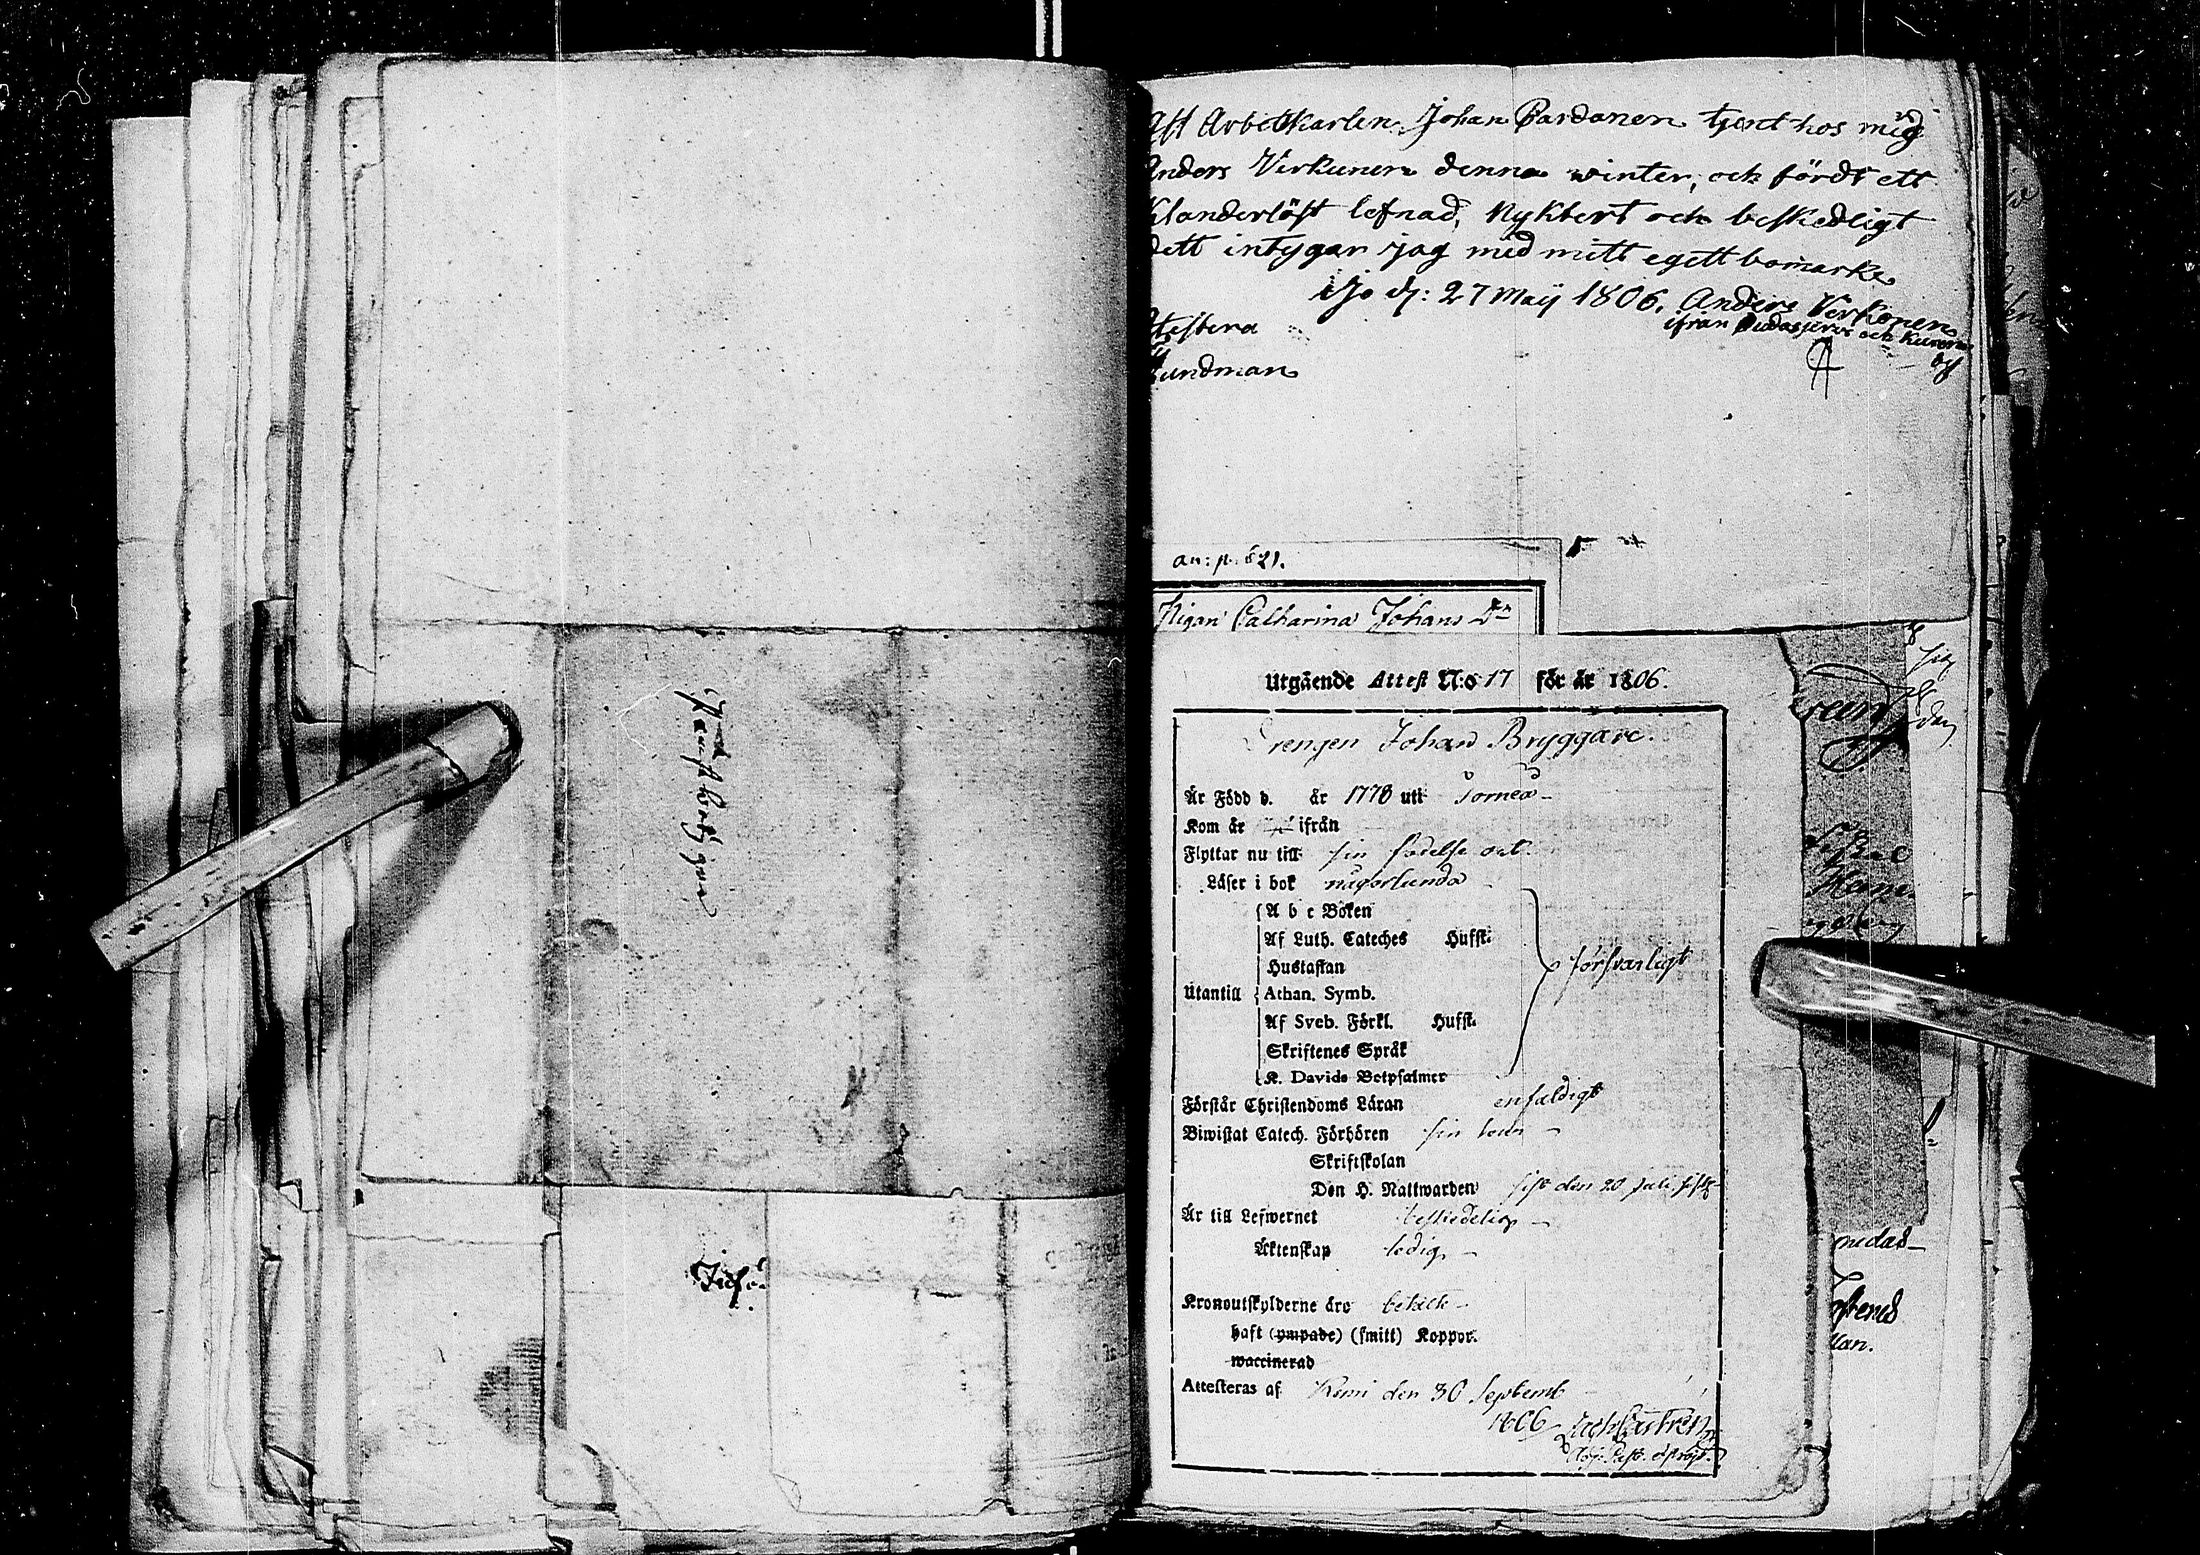 Att Arbetskarlen Johan Pardanen tjent hos mig
Anders Virkunen denna winter, och fördt ett
Klanderlöst lefnad, Nyktert och beskedligt
dett intygar jag med mitt egett bomärke
Ijo d: 27 Maij 1806. Anders Verkonen
ifrån Pudasjervi och Kurem
by
Attestera
Lundman
an: p. 621.
Pigan Catharina Johans Dr
Utgående Attest N:o 17 för år 1806.
Drengen Johan Bryggare.
Är Född d. år 1778 uti Torneå
Kom år ifrån
Flyttar nu till sin födelse ort
Läser i bok någorlunda
A b c Boken
Af Luth. Cateches Hufst.
Hustaflan
Utantill Athan. Symb.
Af Sveb. Förkl. Hufst.
Skriftenes Språk
K. Davids Botpsalmer
försvarligt
Förstår Christendoms Läran enfaldigt
Biwistat Catech. Förhören
Skriftskolan
Den H. Nattwarden sist den 20 Juli sistl.
Är till Lefwernet beskedelig
Äktenskap ledig
Kronoutskylderne äro betalte
haft (ympade) (smitt) Koppor.
waccinerad
Attesteras af Kemi den 30 Septemb
1806 Castrén